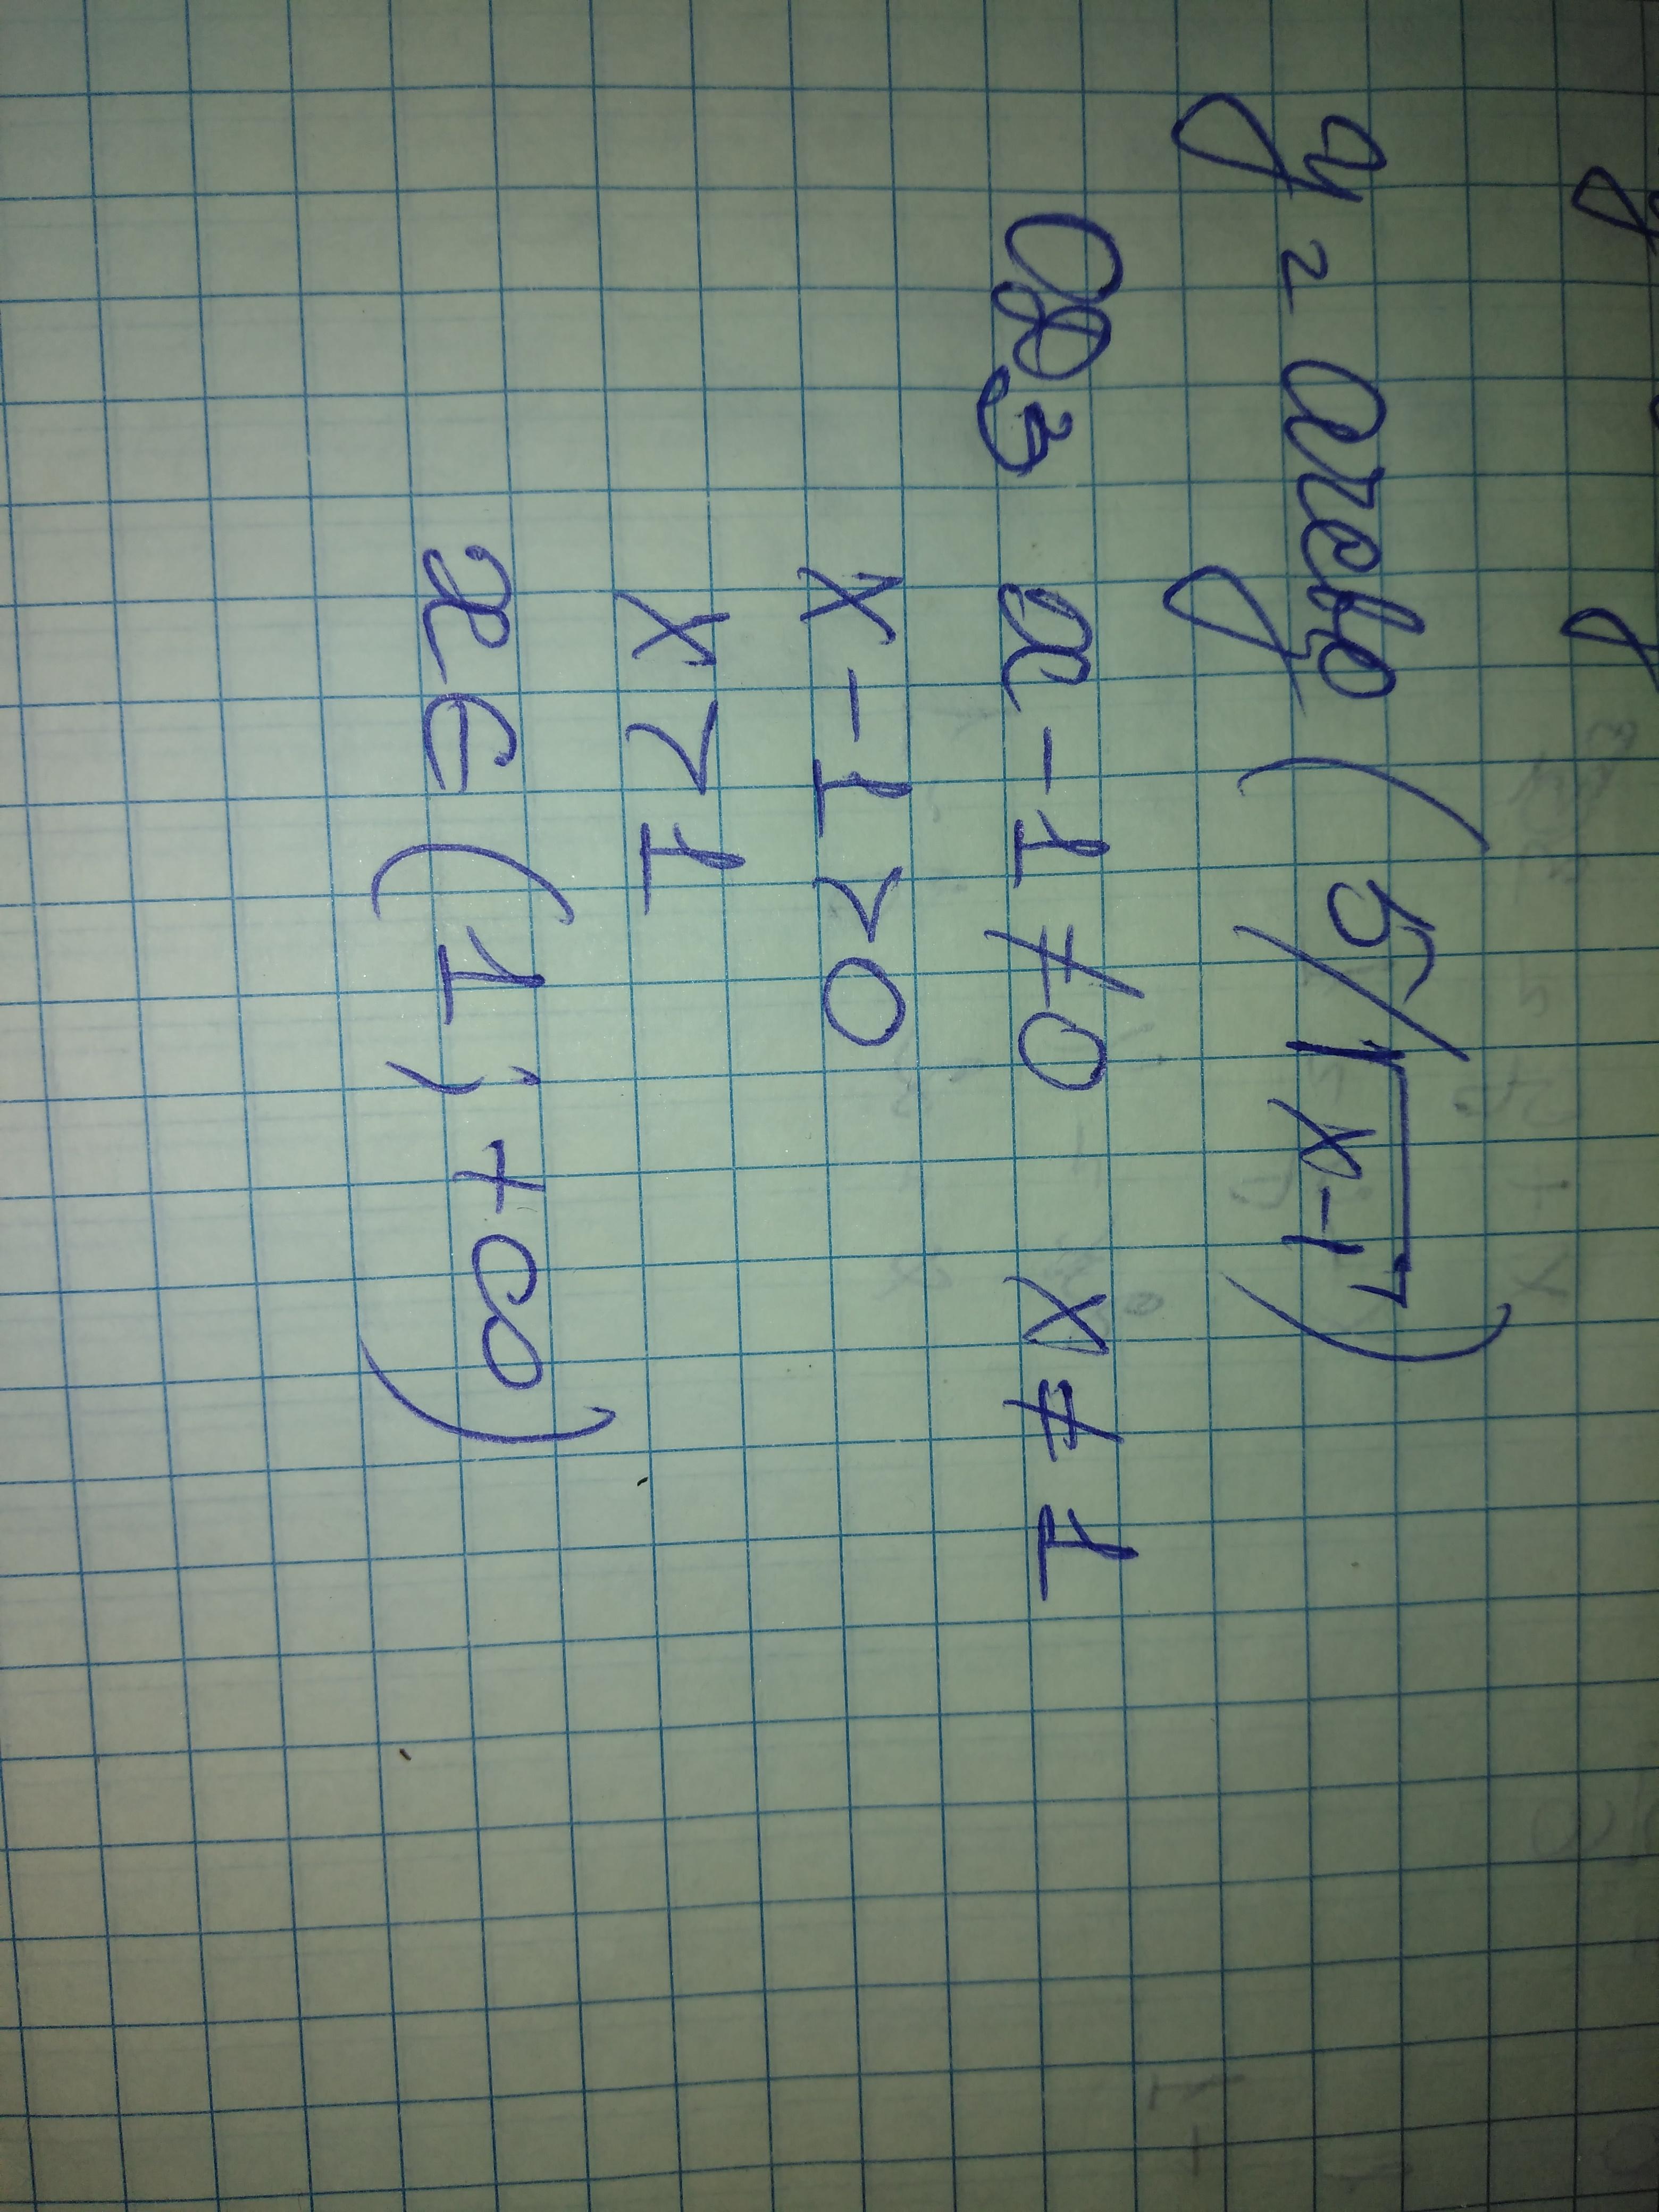 y = arctg (5/√x-1)
Одз x-1≠0 x≠1
x-1>0
x>1
x∈(1; +∞)